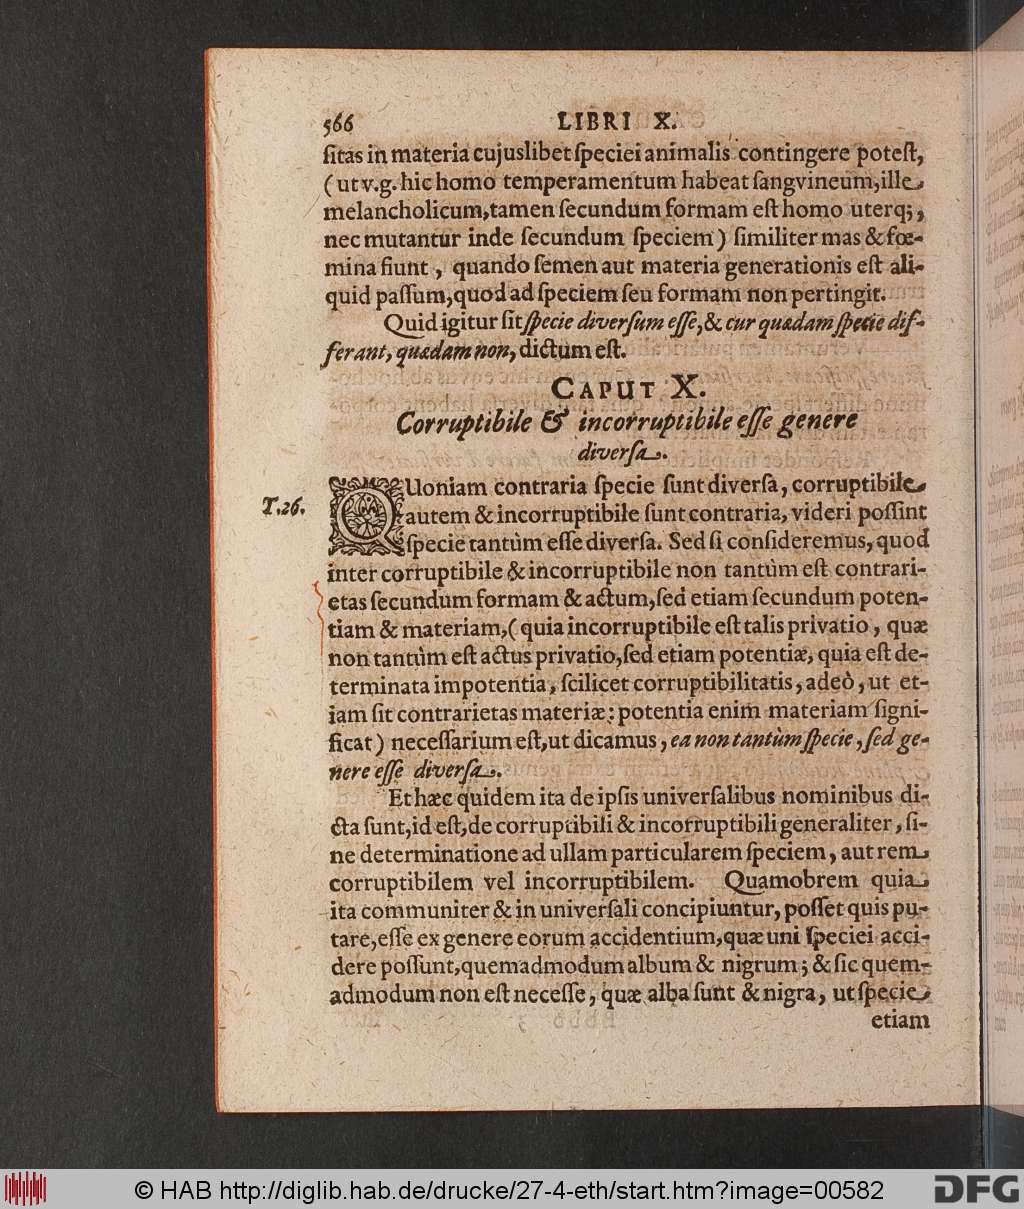 566 LIBRI X.
ſitas in materia cujuslibet ſpeciei animalis contingere poteſt,
(ut v.g. hic homo temperamentum habeat ſangvineum, ille
melancholicum, tamen ſecundum formam eſt homo uterq;,
nec mutantur inde ſecundum ſpeciem) ſimiliter mas & fœ-
mina fiunt, quando ſemen aut materia generationis eſt ali-
quid paſſum, quod ad ſpeciem ſeu formam non pertingit.
Quid igitur ſit ſpecie diverſum eſſe, & cur quædam ſpecie dif-
ferant, quædam non, dictum eſt.
CAPUT X.
Corruptibile & incorruptibile eſſe genere
diverſa.
T.26.
QUoniam contraria ſpecie ſunt diverſa, corruptibile
autem & incorruptibile ſunt contraria, videri poſſint
ſpecie tantùm eſſe diverſa. Sed ſi conſideremus, quod
inter corruptibile & incorruptibile non tantùm eſt contrari-
etas ſecundum formam & actum, ſed etiam ſecundum poten-
tiam & materiam, (quia incorruptibile eſt talis privatio, quæ
non tantùm eſt actus privatio, ſed etiam potentiæ, quia eſt de-
terminata impotentia, ſcilicet corruptibilitatis, adeò, ut et-
iam ſit contrarietas materiæ: potentia enim materiam ſigni-
ficat) neceſſarium eſt, ut dicamus, ea non tantùm ſpecie, ſed ge-
nere eſſe diverſa.
Et hæc quidem ita de ipſis univerſalibus nominibus di-
cta ſunt, id eſt, de corruptibili & incorruptibili generaliter, ſi-
ne determinatione ad ullam particularem ſpeciem, aut rem
corruptibilem vel incorruptibilem. Quamobrem quia
ita communiter & in univerſali concipiuntur, poſſet quis pu-
tare, eſſe ex genere eorum accidentium, quæ uni ſpeciei acci-
dere poſſunt, quemadmodum album & nigrum; & ſic quem-
admodum non eſt neceſſe, quæ alba ſunt & nigra, ut ſpecie
etiam
© HAB http://diglib.hab.de/drucke/27-4-eth/start.htm?image=00582
DFG